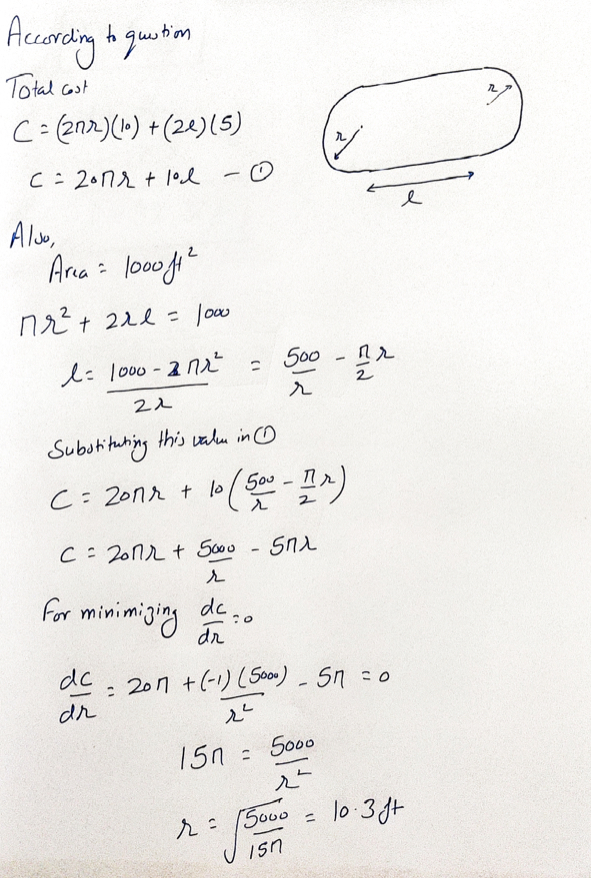 According to qustion
Total cost
C = (2πr)(10) + (2l)(5)
C = 20πr + 10l - ①
r
r
l
Also,
Area = 1000 ft²
πr² + 2rl = 1000
l = (1000 - πr²)/2r = 500/r - π/2 r
Substituting this value in ①
C = 20πr + 10(500/r - π/2 r)
C = 20πr + 5000/r - 5πr
For minimizing dc/dr = 0
dc/dr = 20π + (-1)(5000)/r² - 5π = 0
15π = 5000/r²
r = √(5000/15π) = 10.3 ft